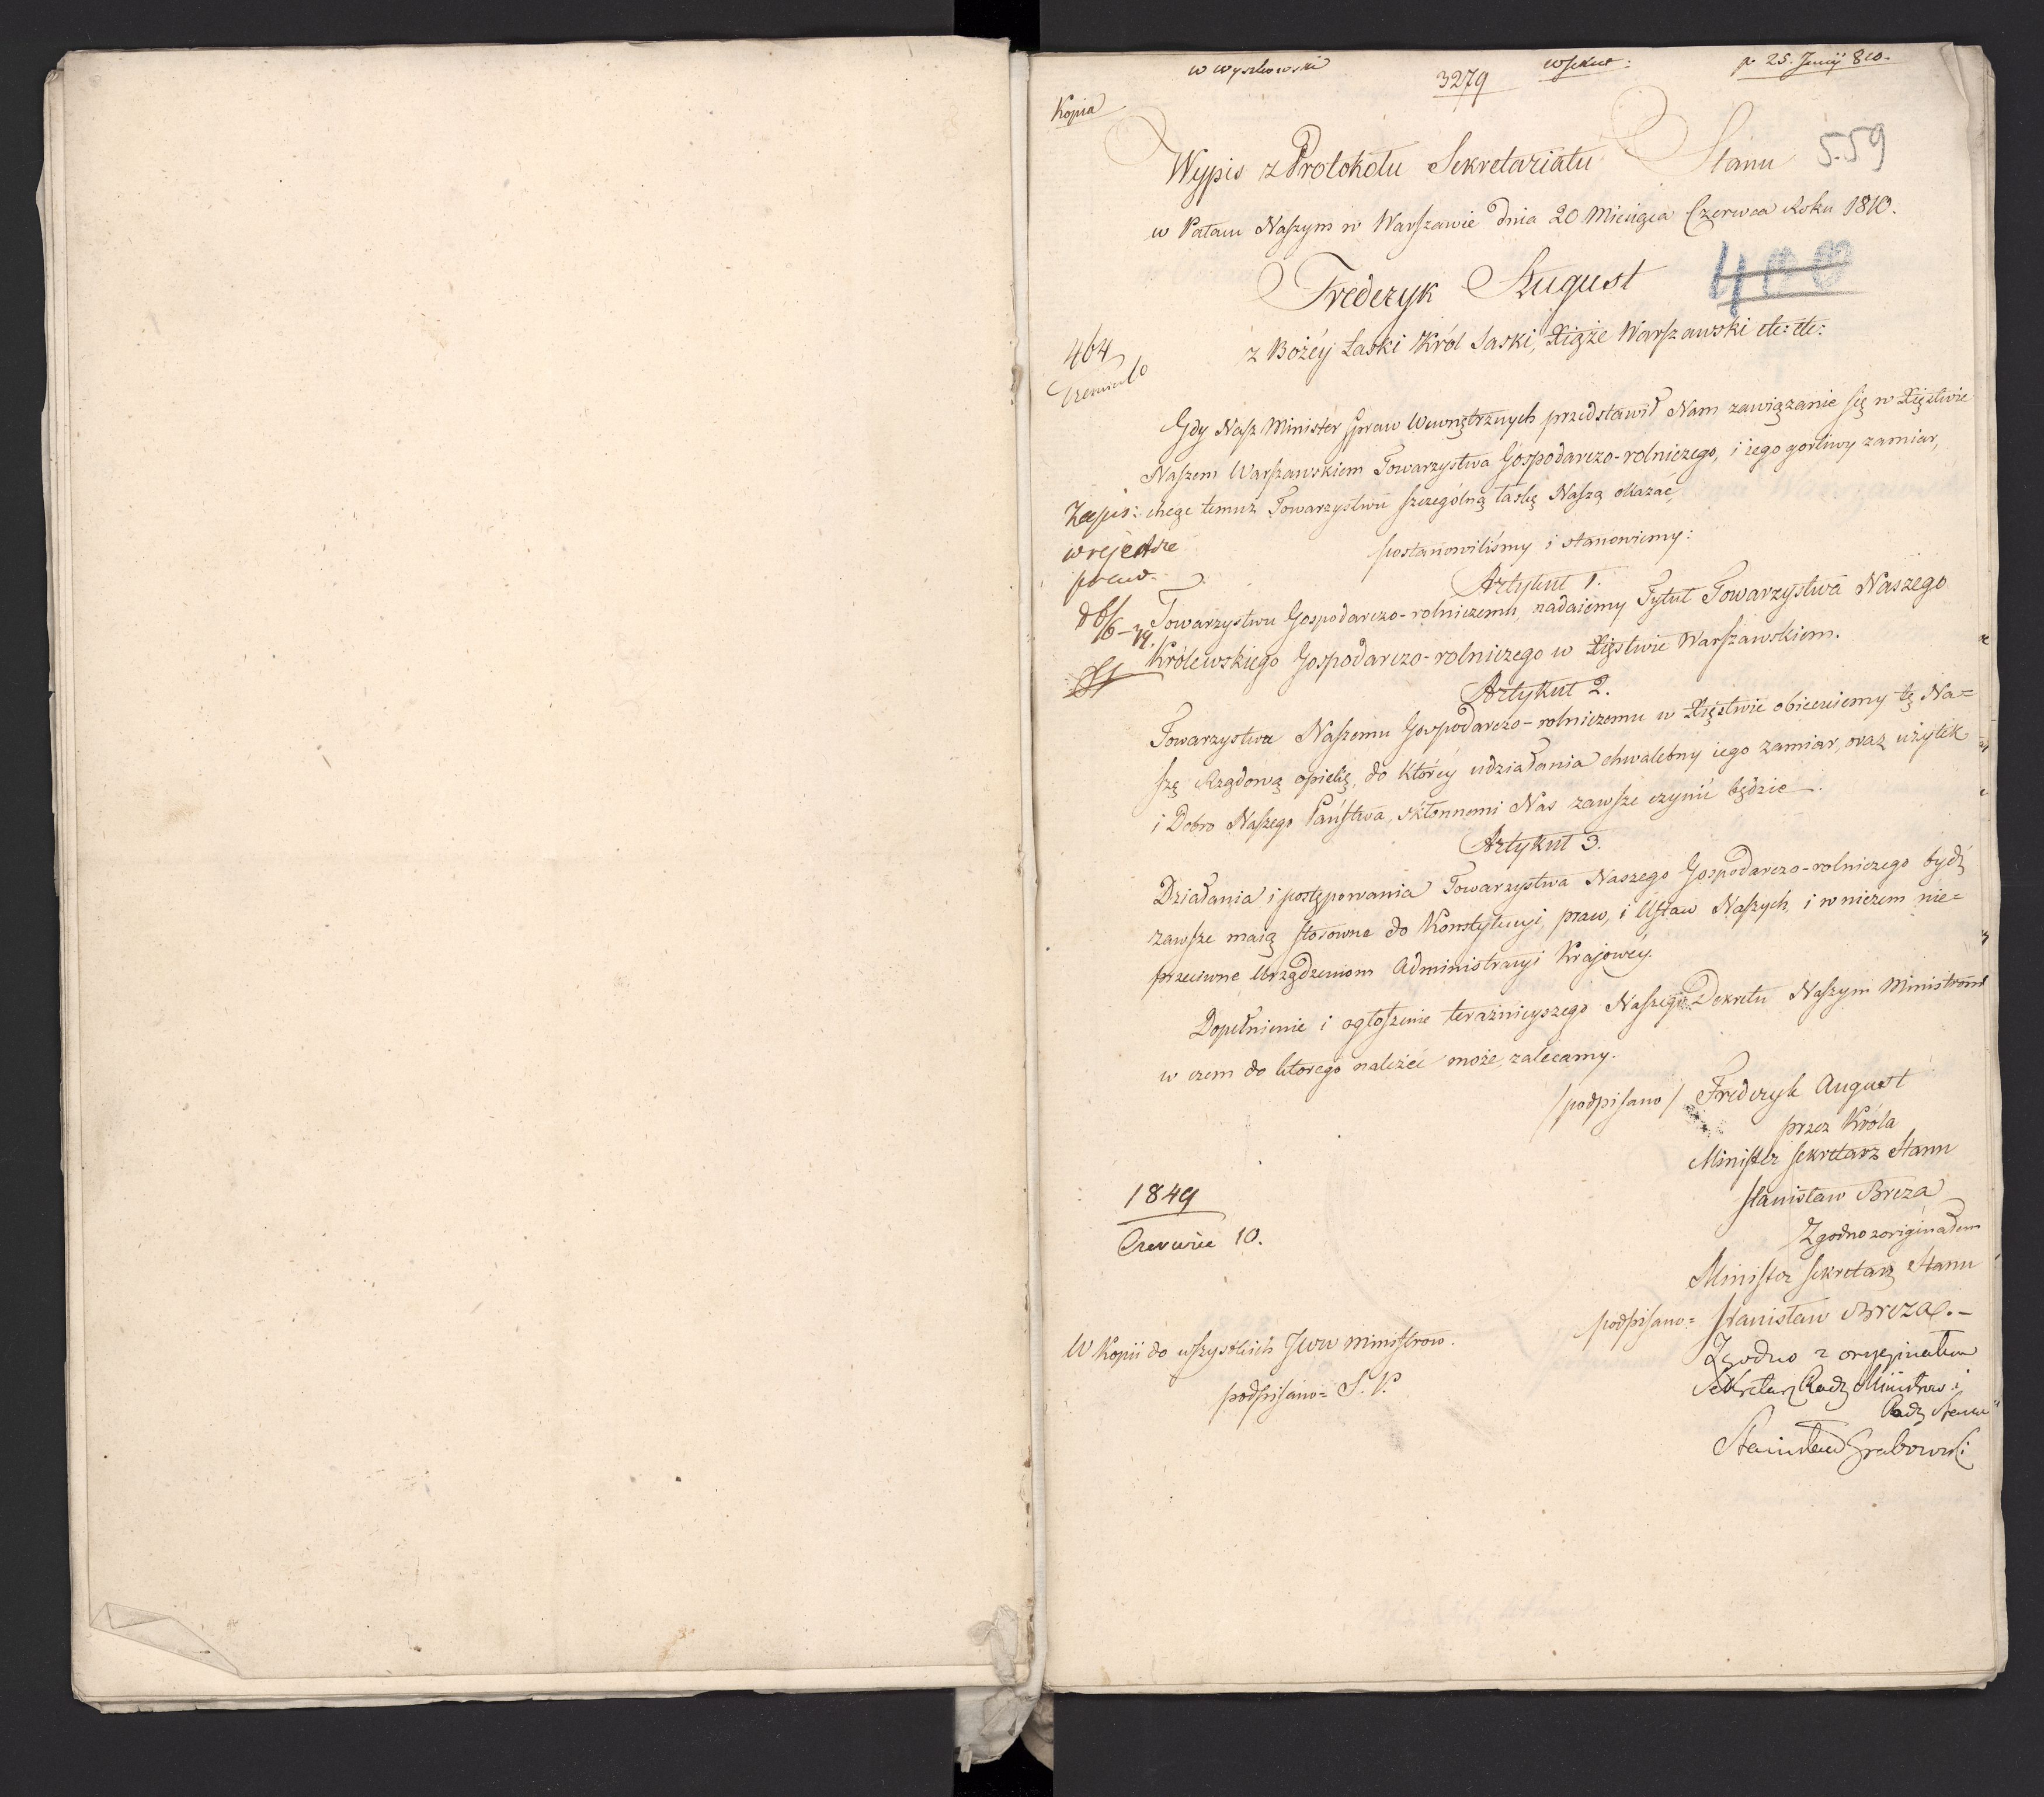 W Wyszkowski
3279
p. 25. Junij 810.
Kopia
Wypis z Protokołu Sekretariatu Stanu
559
w Pałacu Naszym w Warszawie dnia 20 Miesiąca Czerwca Roku 1810.
Frederyk August
400
z Bożéy Łaski Król Saski, Xiąże Warszawski etc: etc:
464
Gdy Nasz Minister Spraw Wewnętrznych przedstawił Nam zawiązanie się w Xięstwie
Naszem Warszawskiem Towarzystwa Gospodarczo-rolniczego, i iego gorliwy zamiar,
chcąc temuż Towarzystwu szczególną łaskę Naszą okazać,
Zapis:
w rejestrze
praw.
postanowiliśmy i stanowiemy:
Artykuł 1.
Towarzystwu Gospodarczo-rolniczemu, nadaiemy Tytuł Towarzystwa Naszego
Królewskiego Gospodarczo-rolniczego w Xięstwie Warszawskiem.
Artykuł 2.
Towarzystwu Naszemu Gospodarczo-rolniczemu w Xięstwie obiecuiemy tę Na=
szę Rządową opiekę, do któréy udziałania chwalebny iego zamiar, oraz użytek
i Dobro Naszego Państwa, skłonnemi Nas zawsze czynić będzie.
Artykuł 3.
Działania i postępowania Towarzystwa Naszego Gospodarczo-rolniczego bydź
zawsze maią stosowne do Konstytucyi, praw, i Ustaw Naszych, i w niczem nie=
przeciwne Urządzeniom Administracyi Krajowéy.
Dopełnienie i ogłoszenie teraźnieyszego Naszego Dekretu Naszym Ministrom
w czem do którego należeć może, zalecamy.
/podpisano/ Frederyk August
przez Króla
Minister Sekretarz Stanu
Stanisław Breza
1849
Czerwca 10.
Zgodno z originałem
Minister Sekretarz Stanu
podpisano= Stanisław Breza.-
W Kopii do wszystkich JWW Ministrow.
podpisano= S. P.
Zgodno z oryginałem
Sekretarz Rady Ministrow i
Rady Stanu
Stanisław Grabowski